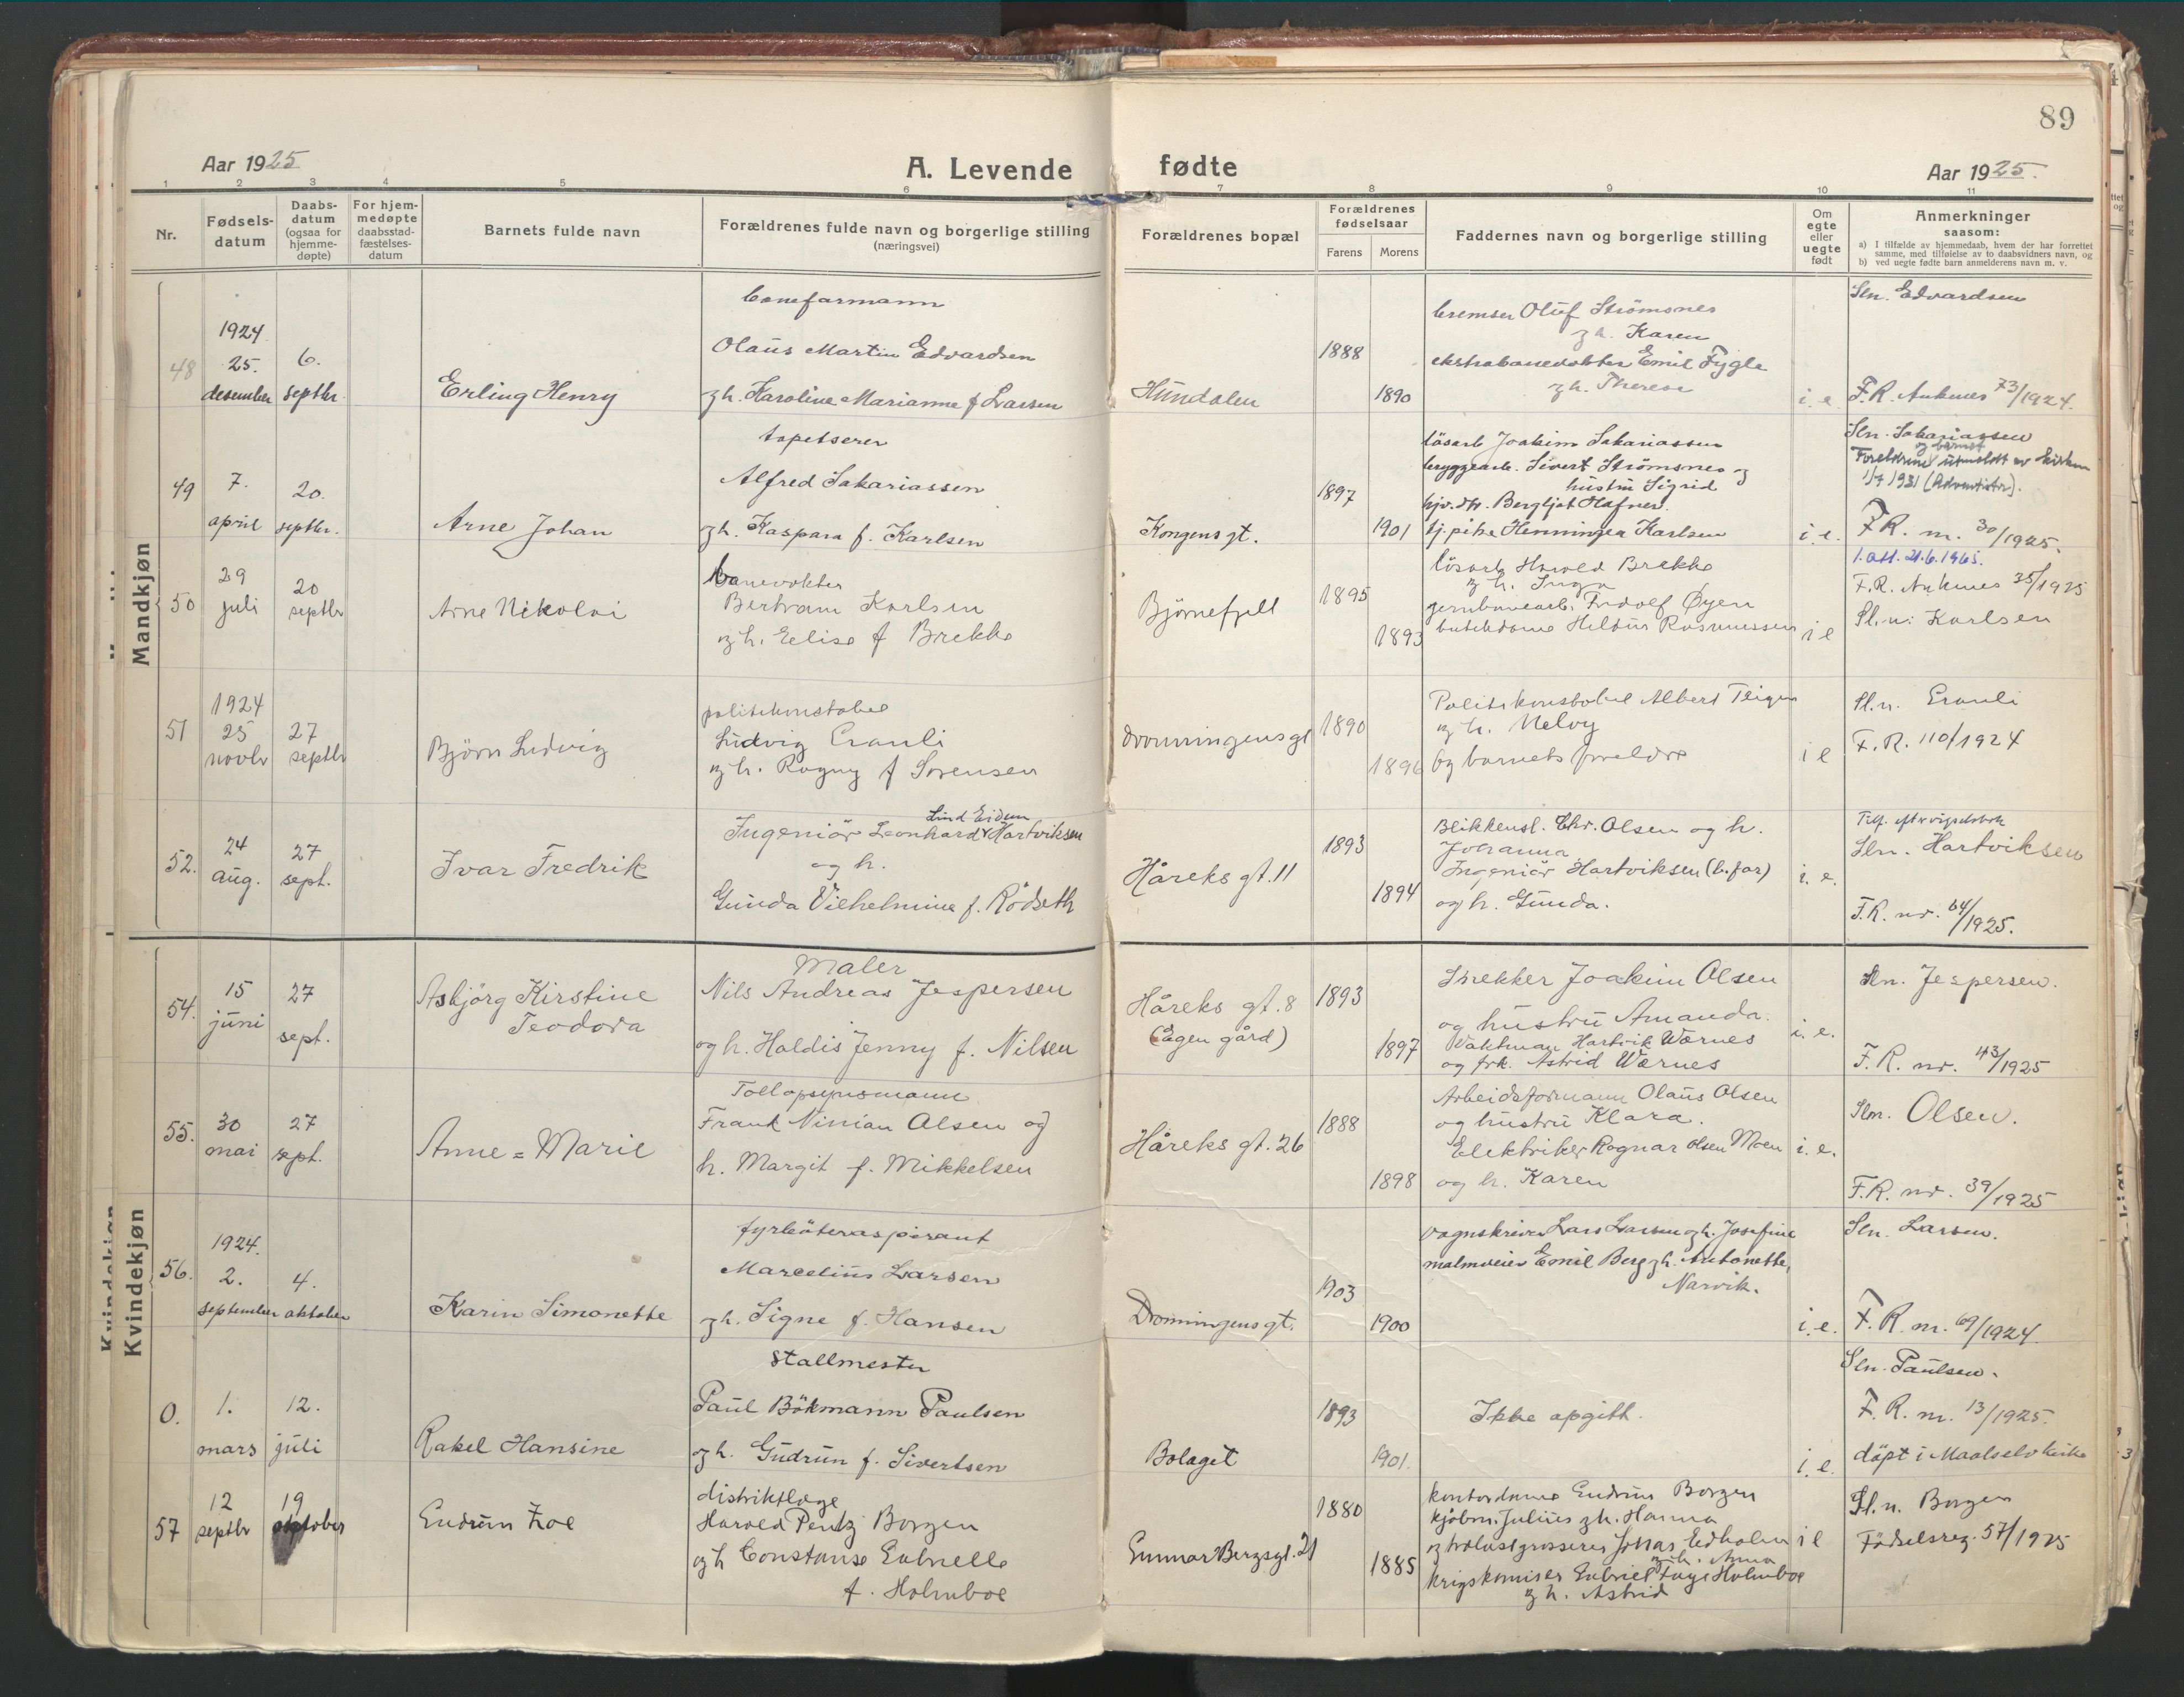 89
Aar 1925
A. Levende fødte
Aar 1925.
1 2 3 4 5 6 7 8 9 10 11
Nr.
Fødsels-
datum
Daabs-
datum
(ogsaa for
hjemme-
døpte)
For hjem-
medøpte
daabsstad-
fæstelses-
datum
Barnets fulde navn
Forældrenes fulde navn og borgerlige stilling
(næringsvei)
Forældrenes bopæl
Forældrenes
fødselsaar
Farens Morens
Faddernes navn og borgerlige stilling
Om
egte
eller
uegte
født
Anmerkninger
saasom:
a) I tilfælde av hjemmedaab, hvem der har forrettet
samme, med tilføielse av to daabsvidners navn, og
b) ved uegte fødte barn anmelderens navn m. v.
Mandkjøn
48
1924
25.
desember
6.
septbr.
Erling Henry
baneformann
Olaus Martin Edvardsen
og h. Karoline Marianne f Larsen
Hundalen
1888
1890
bremser Oluf Strömsnes
og h. Karen
ekstrabanevokter Emil Fygle
og h. Therese
i. e.
Sln. Edvardsen
F.R. Ankenes 73/1924.
49
7.
april
20.
septbr.
Arne Johan
tapetserer
Alfred Sakariassen
og h. Kaspara f. Karlsen
Kongensgt.
1897
1901
lösarb Joakim Sakariassen
bryggearb. Sivert Strömsnes og
hustru Sigrid
hjv. dtr. Bergljot Hafner.
tj. pike Henningea Karlsen
i. e.
Sln. Sakariassen
og barnet
Foreldrene utmeldt av kirken
1/7 1931 (Adventister).
F.R. nr. 30/1925.
1. att. 21.6.1965.
50
29
juli
20
septbr
Arne Nikolai
banevokter
Bertram Karlsen
og h. Elise f Brekke
Björnefjell
1895
1893
lösarb Harald Brekke
og h. Inga
jernbanearb. Fridolf Øyen
butikdame Heldur Rasmussen
i e
F.R. Ankenes 35/1925
Sl.n. Karlsen
51
1924
25
novbr
27
septbr
Björn Ludvig
politikonstabel
Ludvig Cranli
og h. Ragny f Sörensen
Dronningensgt
1890
1896
Politikonstabel Albert Teigen
og h. Nelvy
og barnets foreldre
i e
Sl.n. Cranli
F.R. 110/1924
52.
24
aug.
27
sept.
Ivar Fredrik
Lind Eidum
Ingeniör Leonhard Hartviksen
og h.
Gunda Vilhelmine f. Rödseth
Håreks gt. 11
1893
1894
Blikkensl. Chr. Olsen og h.
Johanna
Ingeniör Hartviksen (b. far)
og h. Gunda.
i. e.
Tilf. efter vigselsbok
Sln. Hartviksen
F.R. nr. 64/1925.
Kvindekjøn
54.
15
juni
27
sept.
Asbjörg Kirstine
Teodora
Maler
Nils Andreas Jespersen
og h. Haldis Jenny f. Nilsen
Håreks gt. 8
(Egen gård)
1893
1897
Snekker Joakim Olsen
og hustru Amanda.
Vaktman Hartvik Wærnes
og frk. Astrid Wærnes
i. e.
Sln. Jespersen.
F.R. nr. 43/1925
55.
30
mai
27
sept.
Anne=Marie
Tollopsynsmann
Frank Ninian Olsen og
h. Margit f. Mikkelsen
Håreks gt. 26
1888
1898
Arbeidsformann Olaus Olsen
og hustru Klara.
Elektriker Ragnar Olsen Moen
og h. Karen
i. e.
Sln. Olsen.
F.R. nr. 39/1925
56.
1924.
2.
september
4.
oktober
Karin Simonette
fyrböteraspirant
Marcelius Larsen
og h. Signe f. Hansen
Dronningensgt.
1903
1900
vognskriver Lars Larsen og h. Josefine
malmveier Emil Berg og h. Antonette,
Narvik.
i. e.
Sln. Larsen.
F.R. nr. 69/1924.
0.
1.
mars
12.
juli
Rakel Hansine
Stallmester
Paul Bökmann Paulsen
og h. Gudrun f. Sivertsen
Bolaget
1893
1901.
Ikke opgitt.
i. e.
Sln. Paulsen.
F.R. nr. 13/1925.
döpt i Maalselv kirke
57
12
septbr
19
oktober
Gudrun Zoe
distriktlæge
Harald Pentz Borgen
og h Constanse Gabrielle
f. Holmboe
Gunnar Bergsgt. 21
1880
1885
kontordame Gudrun Borgen
kjöbm. Julius og h. Hanna
og trælastgrosserer Jonas Edholm
og h. Anna
krigskomisær Gabriel Faye Holmboe
og h. Astrid
i e
Sl.n. Borgen
Födselsreg. 57/1925